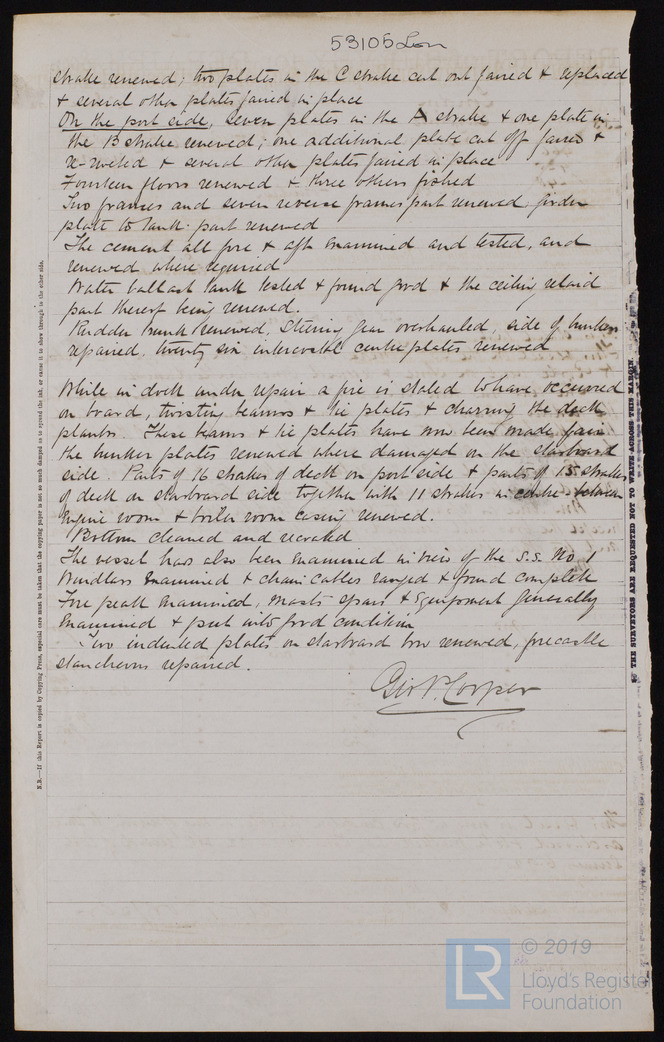 53105 Lon
strake renewed; two plates in the C strake cut out faired & replaced
& several other plates faired in place
On the port side, seven plates in the A strake & one plate in
the B strake renewed; one additional plate cut off faired &
re-riveted & several other plates faired in place
Fourteen floors renewed & three others fished
Two frames and seven reverse frames part renewed, girder
plate to tank: part renewed
The cement all fore & aft examined and tested, and
renewed where required
Water ballast tank tested & found good & the ceiling relaid
part thereof being renewed.
Rudder trunk renewed, Steering gear overhauled, side of bunker
repaired, twenty six intercostal centre plates renewed
While in dock under repair a fire is stated to have occurred
on board, twisting beams & tie plates & charring the deck
planks. These beams & tie plates have now been made fair
the bunker plates renewed where damaged on the starboard
side. Parts of 16 strakes of deck on port side & parts of 15 strakes
of deck on starboard side together with 11 strakes in centre between
engine room & boiler room casing renewed.
Bottom cleaned and recoated
The vessel has also been examined in view of the S.S. No 1
Windlass examined & chain cables ranged & found complete
Fore peak examined, masts spars & Equipment generally
examined & put into good condition
Two indented plates on starboard bow renewed, forecastle
stanchions repaired.
Geo. P. Cooper
N.B.—If this Report is copied by Copying Press, especial care must be taken that the copying paper is not so much damped as to spread the ink, or cause it to show through to the other side.
THE SURVEYORS ARE REQUESTED NOT TO WRITE ACROSS THIS MARGIN.
LR
© 2019
Lloyd's Register
Foundation